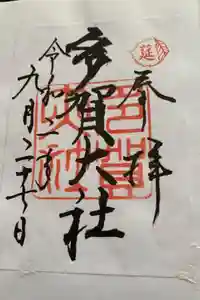 延
奉拝
多賀大社
令和二年
九月二十七日